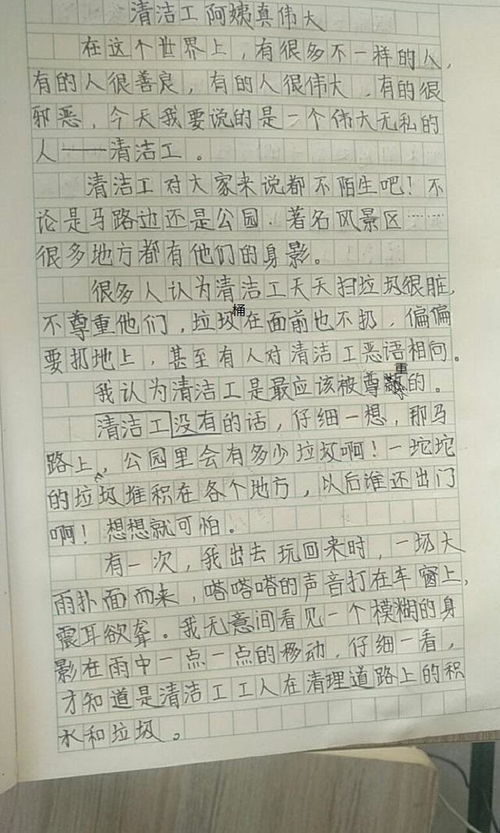 清洁工阿姨真伟大
在这个世界上，有很多不一样的人，
有的人很善良，有的人很伟大，有的很
邪恶，今天我要说的是一个伟大无私的
人——清洁工。
清洁工对大家来说都不陌生吧！不
论是马路边还是公园、著名风景区……
很多地方都有他们的身影。
很多人认为清洁工天天扫垃圾很脏，
不尊重他们，垃圾桶在面前也不扔，偏偏
要扔地上，甚至有人对清洁工恶语相向。
我认为清洁工是最应该被尊重的。
清洁工没有的话，仔细一想，那马
路上，公园里会有多少垃圾啊！一坨坨
的垃圾堆积在各个地方，以后谁还出门
啊！想想就可怕。
有一次，我出去玩回来时，一场大
雨扑面而来，嗒嗒嗒的声音打在车窗上，
震耳欲聋。我无意间看见一个模糊的身
影在雨中一点一点的移动，仔细一看，
才知道是清洁工工人在清理道路上的积
水和垃圾。